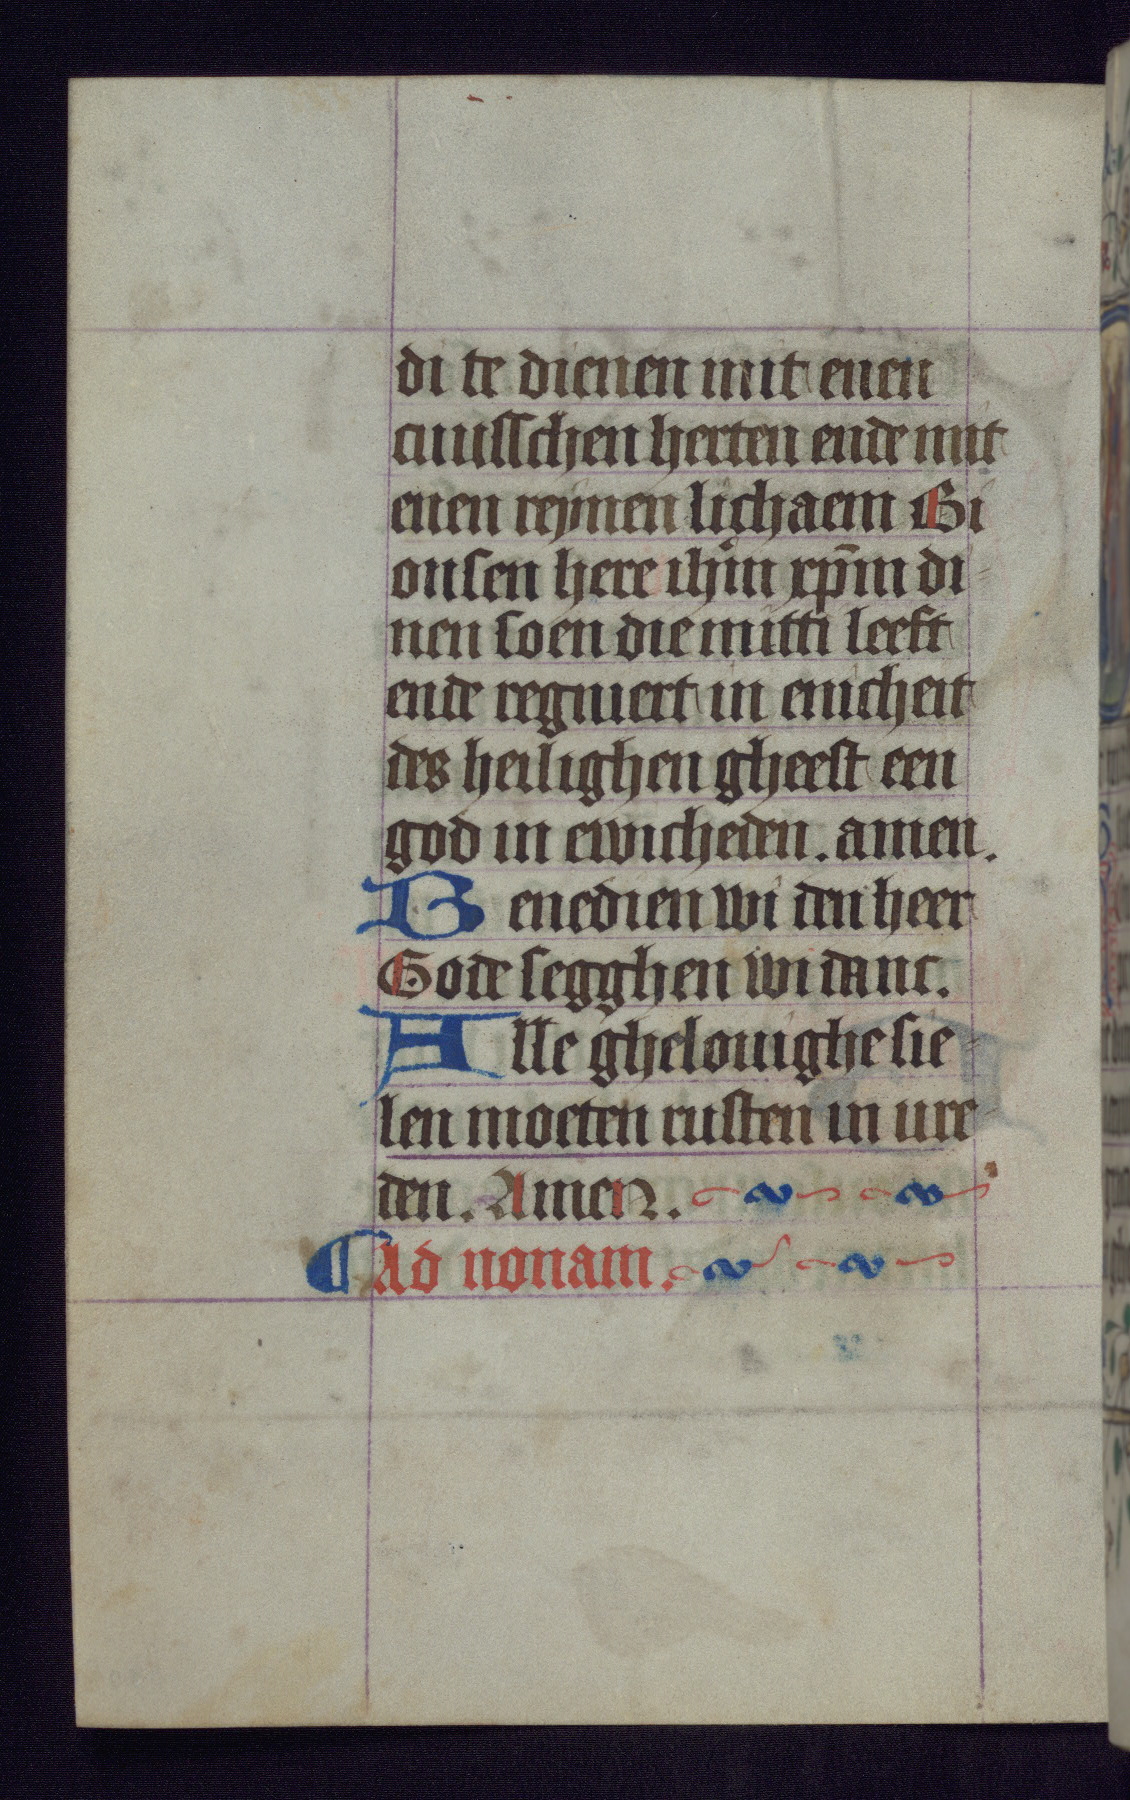 di te dienen mit enen
cuusschen herten ende mit
enen reynen lichaem Bi
onsen here ihm̄ xp̄m di
nen soen die mitti leeft
ende regniert in enicheit
des heilighen gheest een
god in ewicheden. amen.
Benedien wi den heer
Gode segghen wi danc.
Alle ghelouighe sie
len moeten rusten in vre
den. Amen.
Ad nonam.